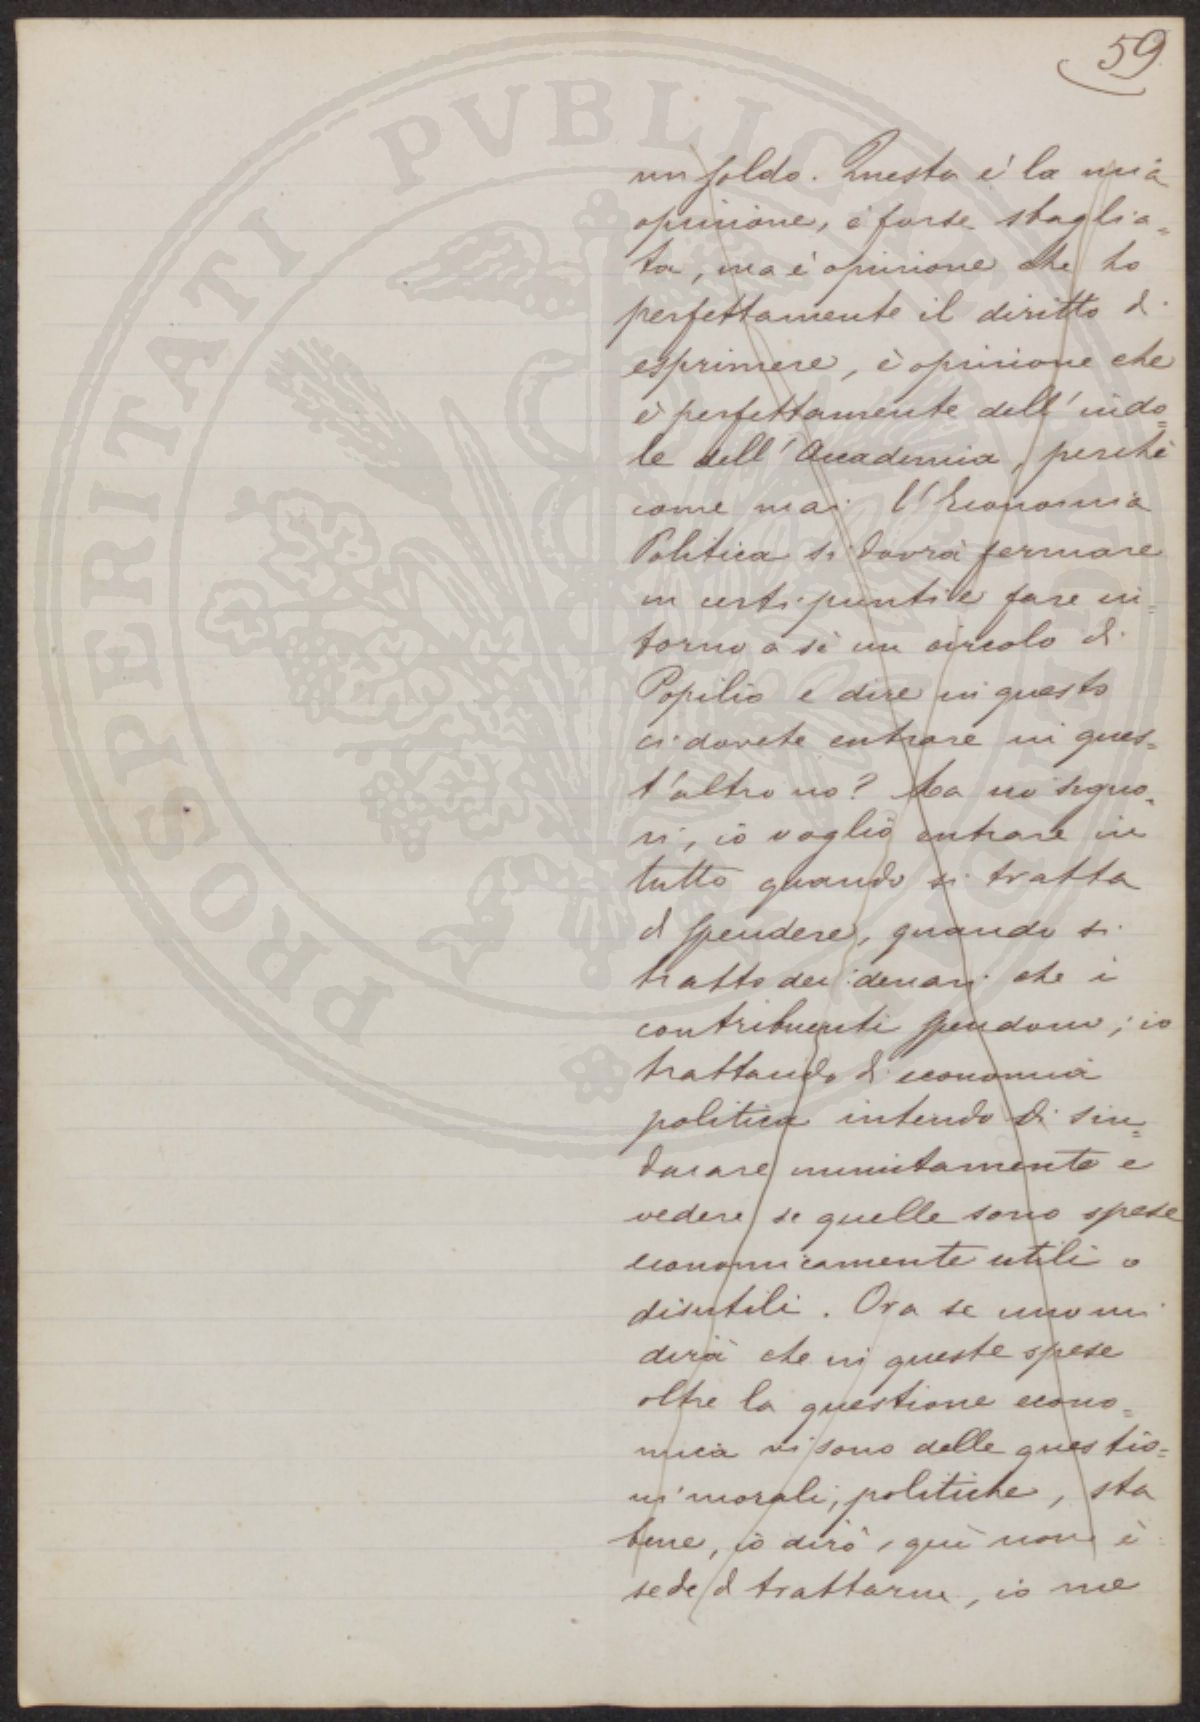 59
un soldo. Questa è la mia
opinione, è forse sbaglia=
ta, ma è opinione che ho
perfettamente il diritto di
esprimere, è opinione che
è perfettamente dell'indo=
le dell'Accademia, perchè
come mai l'Economia
Politica si dovrà fermare
in certi punti e fare in=
torno a sè un circolo di
Popilio e dire in questo
ci dovete entrare in ques=
t'altro no? Ma no signo=
ri, io voglio entrare in
tutto quando si tratta
di spendere, quando si
tratta dei denari che i
contribuenti spendono; io
trattando di economia
politica intendo di sin=
dacare minutamente e
vedere se quelle sono spese
economicamente utili o
disutili. Ora se uno mi
dirà che in queste spese
oltre la questione econo=
mica vi sono delle questio=
ni morali, politiche, sta
bene, io dirò, qui non è
sede di trattarne, io me
PROSPERITATI PVBLICAE